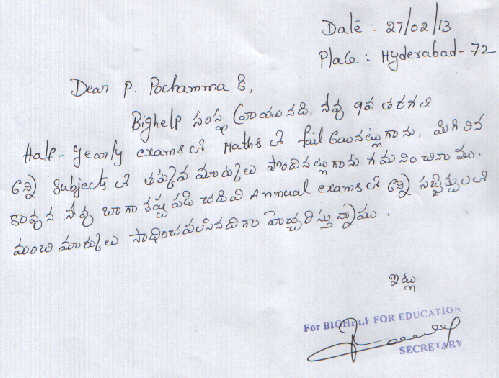 Date - 27/02/13
Place : Hyderabad - 72
Dear P. Pochamma G,
Bighelp సంస్థ వ్రాయునది. నీవు 9వ తరగతి
Half-Yearly exams లో Maths లో fail అయినట్లుగాను, మిగిలిన
అన్ని Subjects లో తక్కువ మార్కులు పొందినట్లుగాను గమనించినాము.
కావున నీవు బాగా కష్టపడి చదివి Annual exams లో అన్ని సబ్జెక్టులలో
మంచి మార్కులు సాధించవలసినదిగా హెచ్చరిస్తున్నాము.
ఇట్లు
For BIGHELP FOR EDUCATION
SECRETARY